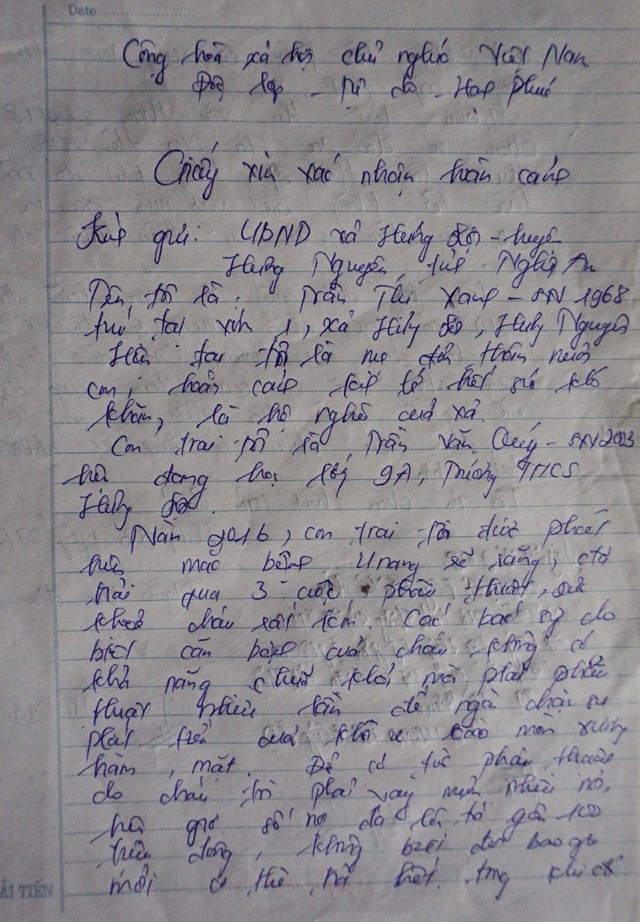 Date
Cộng hoà xã hội chủ nghĩa Việt Nam
Độc lập - Tự do - Hạnh phúc
Giấy xin xác nhận hoàn cảnh
Kính gửi: UBND xã Hưng Đạo - huyện
Hưng Nguyên, tỉnh Nghệ An
Tên tôi là: Trần Thị Xanh - SN 1968
trú tại xóm 1, xã Hưng Đạo, Hưng Nguyên
Hiện tại tôi là mẹ đơn thân nuôi
con, hoàn cảnh kinh tế hết sức khó
khăn, là hộ nghèo của xã.
Con trai tôi là Trần Văn Quý - SN 2003
hiện đang học lớp 9A, Trường THCS
Hưng Đạo.
Năm 2016, con trai tôi được phát
hiện mắc bệnh U nang sẽ răng, đã
trải qua 3 cuộc phẫu thuật, sức
khoẻ cháu rất kém. Các bác sỹ cho
biết căn bệnh của cháu không có
khả năng chữa khỏi, mà phải phẫu
thuật nhiều lần để ngăn chặn sự
phát triển của khối u bào mòn xương
hàm, mặt. Để có tiền phẫu thuật
cho cháu tôi phải vay mượn nhiều nơi,
hiện giờ số nợ đã lên tới gần 100
triệu đồng, không biết đến bao giờ
mới có thể trả hết. trong khi đó
ẢI TIẾN